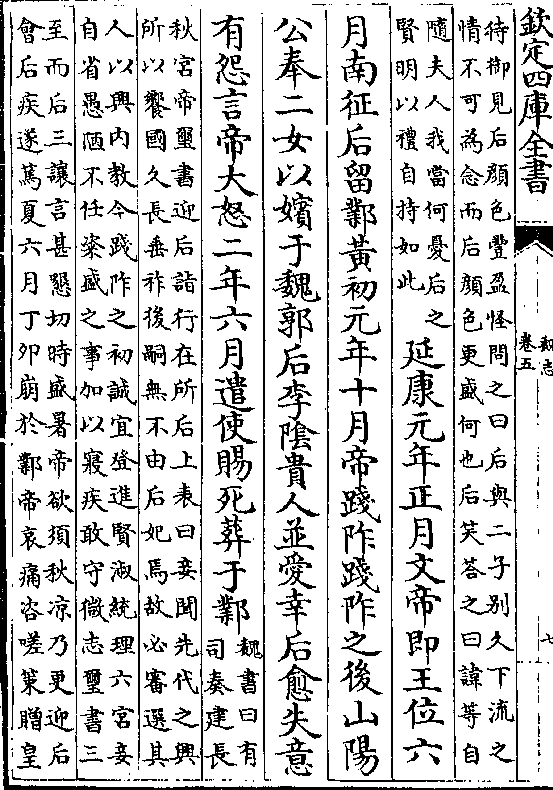 欽定四庫全書
魏志
卷五
七
待御見后顔色豐盈怪問之曰后與二子别久下流之
情不可為念而后顔色更盛何也后笑荅之曰諱等自
隨夫人我當何憂后之
賢明以禮自持如此
延康元年正月文帝即王位六
月南征后留鄴黄初元年十月帝踐阼踐阼之後山陽
公奉二女以嬪于魏郭后李陰貴人並愛幸后愈失意
有怨言帝大怒二年六月遣使賜死葬于鄴
魏書曰有
司奏建長
秋宫帝璽書迎后詣行在所后上表曰妾聞先代之興
所以饗國久長垂祚後嗣無不由后妃焉故必審選其
人以興内教令踐阼之初誠宜登進賢淑統理六宫妾
自省愚陋不任粢盛之事加以寢疾敢守微志璽書三
至而后三讓言甚懇切時盛暑帝欲須秋凉乃更迎后
會后疾遂篤夏六月丁卯崩於鄴帝哀痛咨嗟䇿贈皇